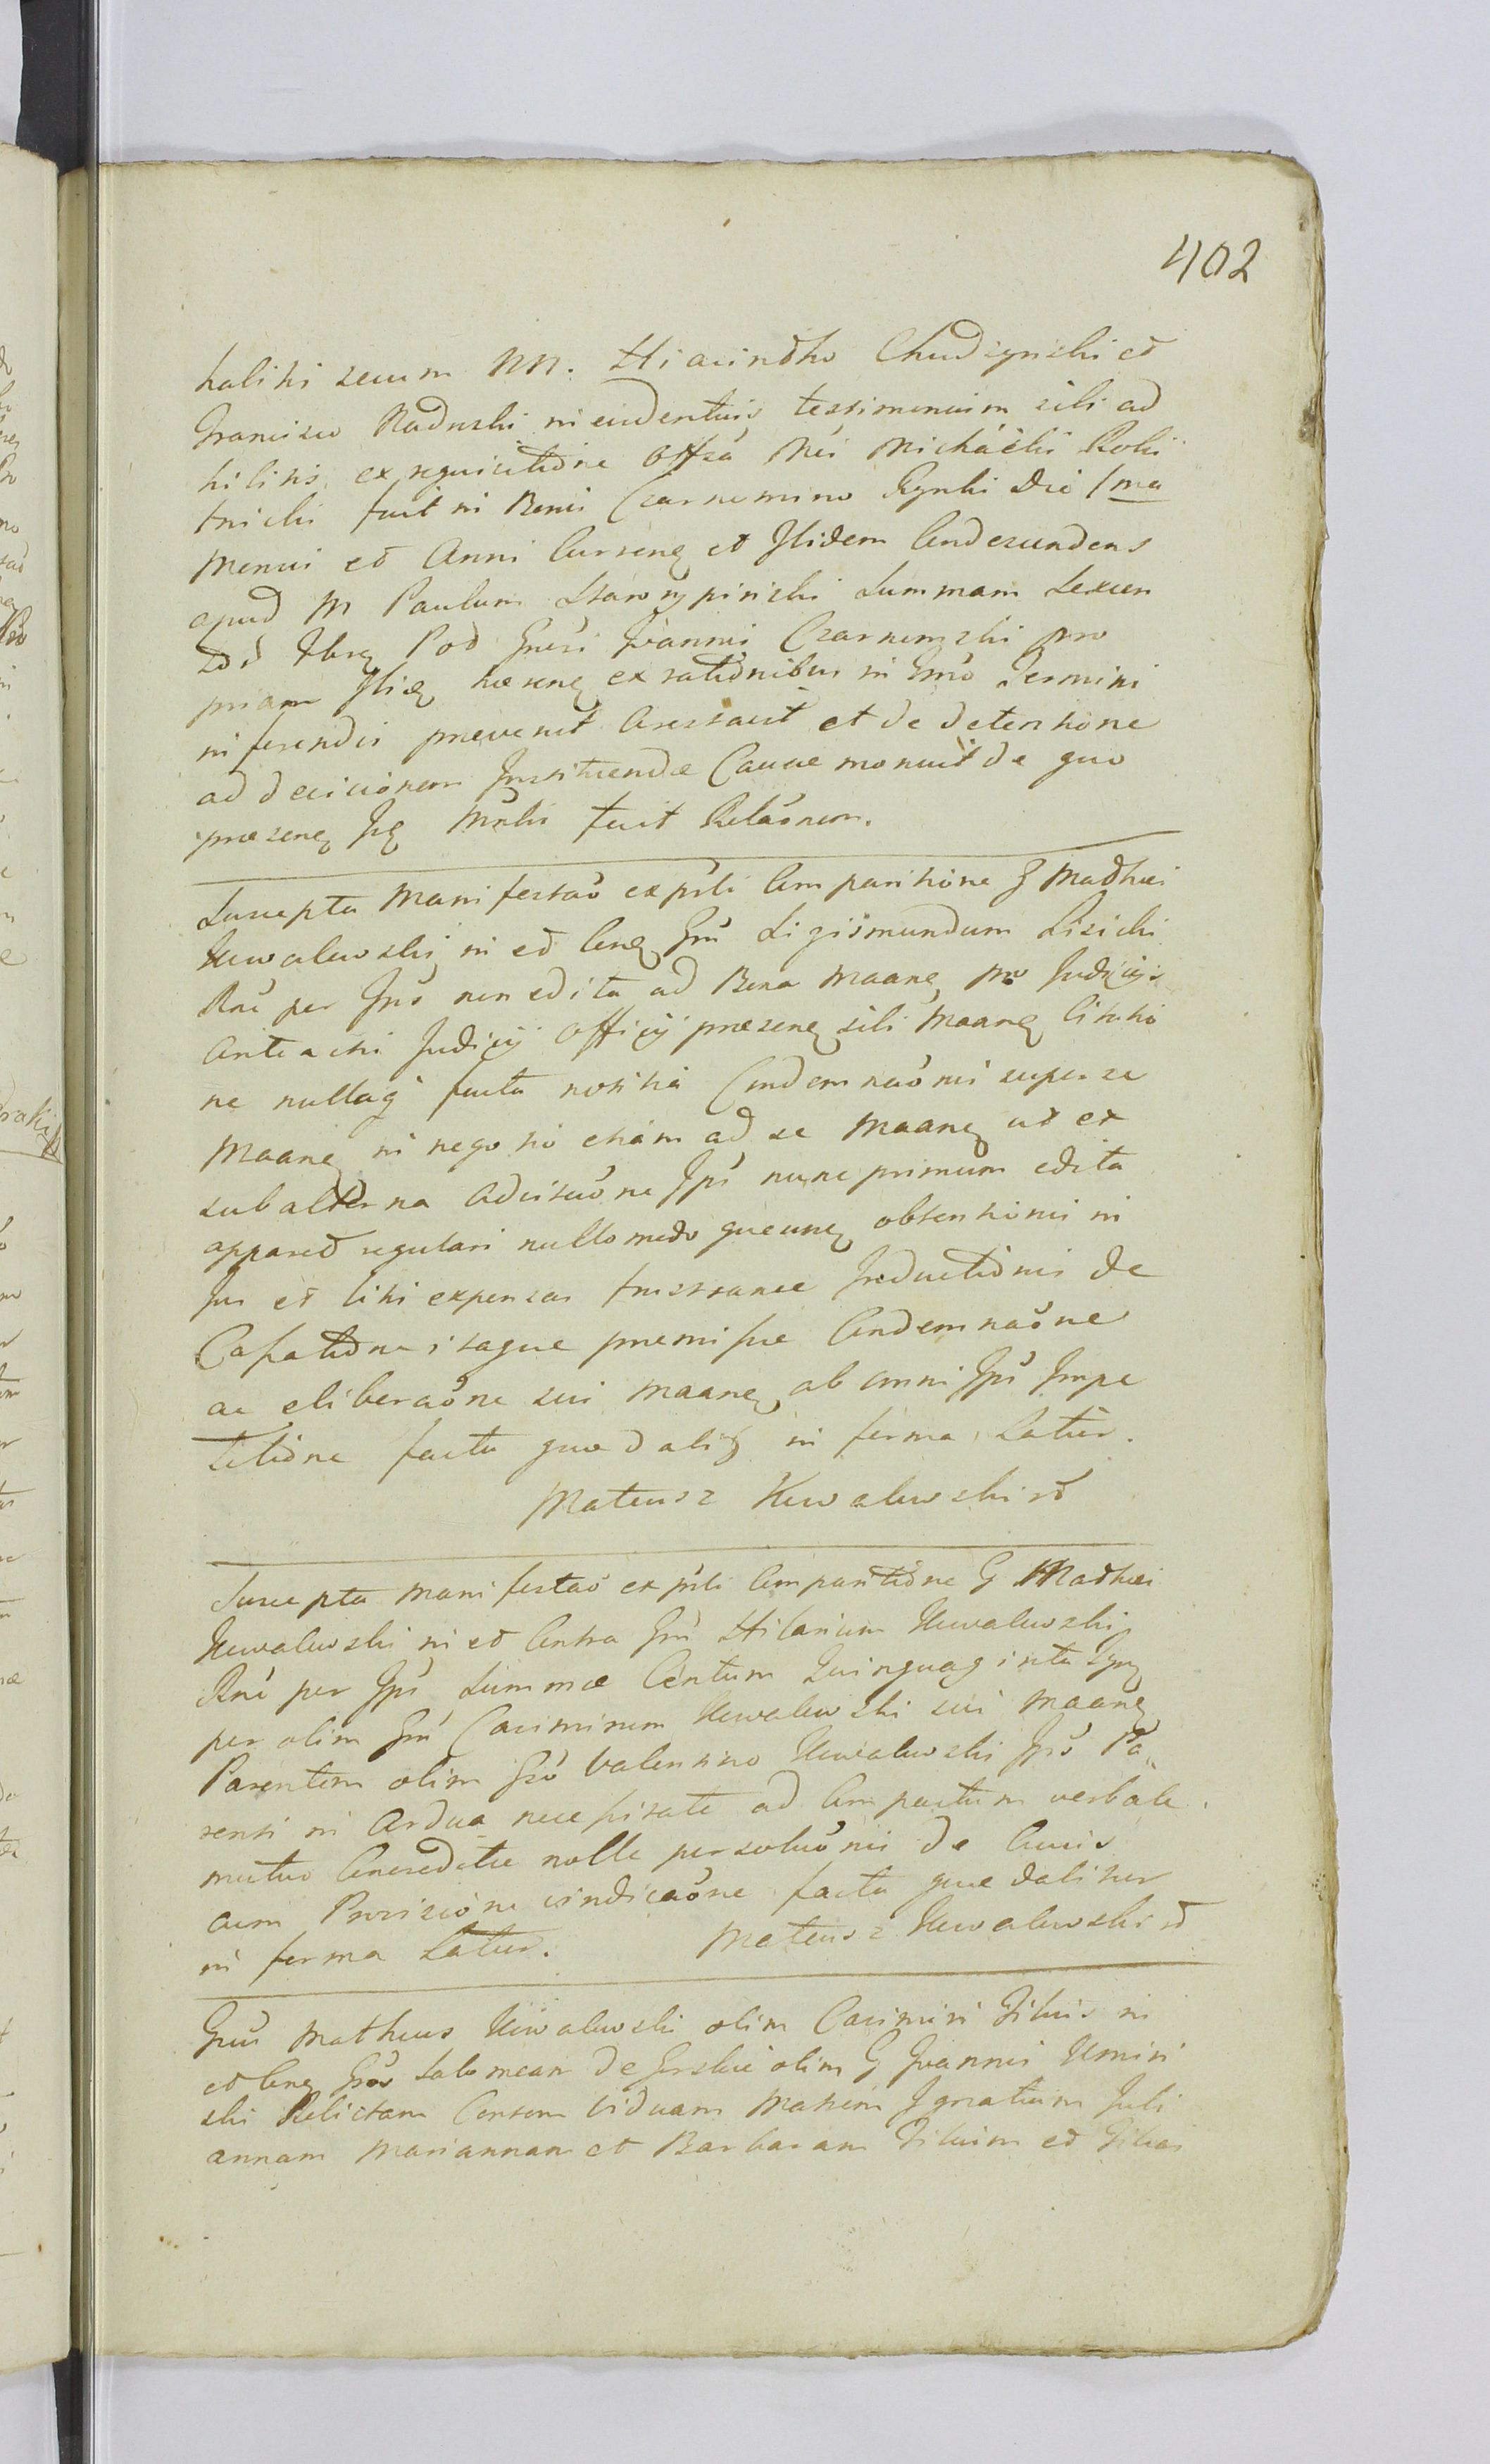 402
halihi secum NN. Hiacintho Chudzynski et
Francisco Radnski in evidentius testimonium sibi ad
hibitis ex requisitione Offsa Mci Michaelis Roki
tnicki fuit in Bonis Czarnomino Rynki die 1ma
Mensis et Anni Currenq et Ibidem Condescendens
apud M Paulum Starozypinski Summam Sexcen
Pod Gnosi Joannis Czarnomski pro
priam ex rationibus in Gmo Termini
in ferendis prevenit Arestavit et de detentione
ad decisionem Instituendae Causae monuit de quo
praesenq suam fecit Relaonem.
Suscepta Manifestao ex psli Comparitione G Mathaei
Kowalewski in et Conq Gm Sigismundum Lisicki
Rne per Ips non edita ad Bona Maanq pro Judicijs
Anteacti Judicij Officij praesenq sibi Maanq Citatio
ne nullaq facta notitia Condemnaonis super se
Maanq in negotio etiam ad se Maanq ut ex
subalterna Advisaone Ips nunc primum edita
apparet regulari nullo modo quecunq obtentionis in
Jus et Citi expensas frustranee Inductionis de
Cassatione itaque premissae Condemnaone
ac eliberaone sui Maanq ab omni Ips Impe
titione facta quae dalis in forma Latur.
Mateusz Kowalewski
Suscepta Manifestao ex psli Comparitione G Mathaei
Kowalewski in et Contra Gm Hilarium Kowalewski
Rne per Ips Summae Centum Quinquaginta
per olim Gm Casimirum Kowalewski sui Maanq
Parentem olim Gso Valentino Kowalewski Ips Pa
renti in Ardua necessitate ad Compactum verbale
mutuo Concreditae nolle persoluonis de Cuius
cum Provisione vindicaone facta quae daliter
in forma Latur. Mateusz Kowalewski
Gnus Matheus Kowalewski olim Casimiri Filius in
et Conq Gsos Salomeam de Gorskie olim G Joannis Umins
ski Relictam Consortem Viduam Matrem Ignatium Juli
annam Mariannam et Barbaram Filium et Filias